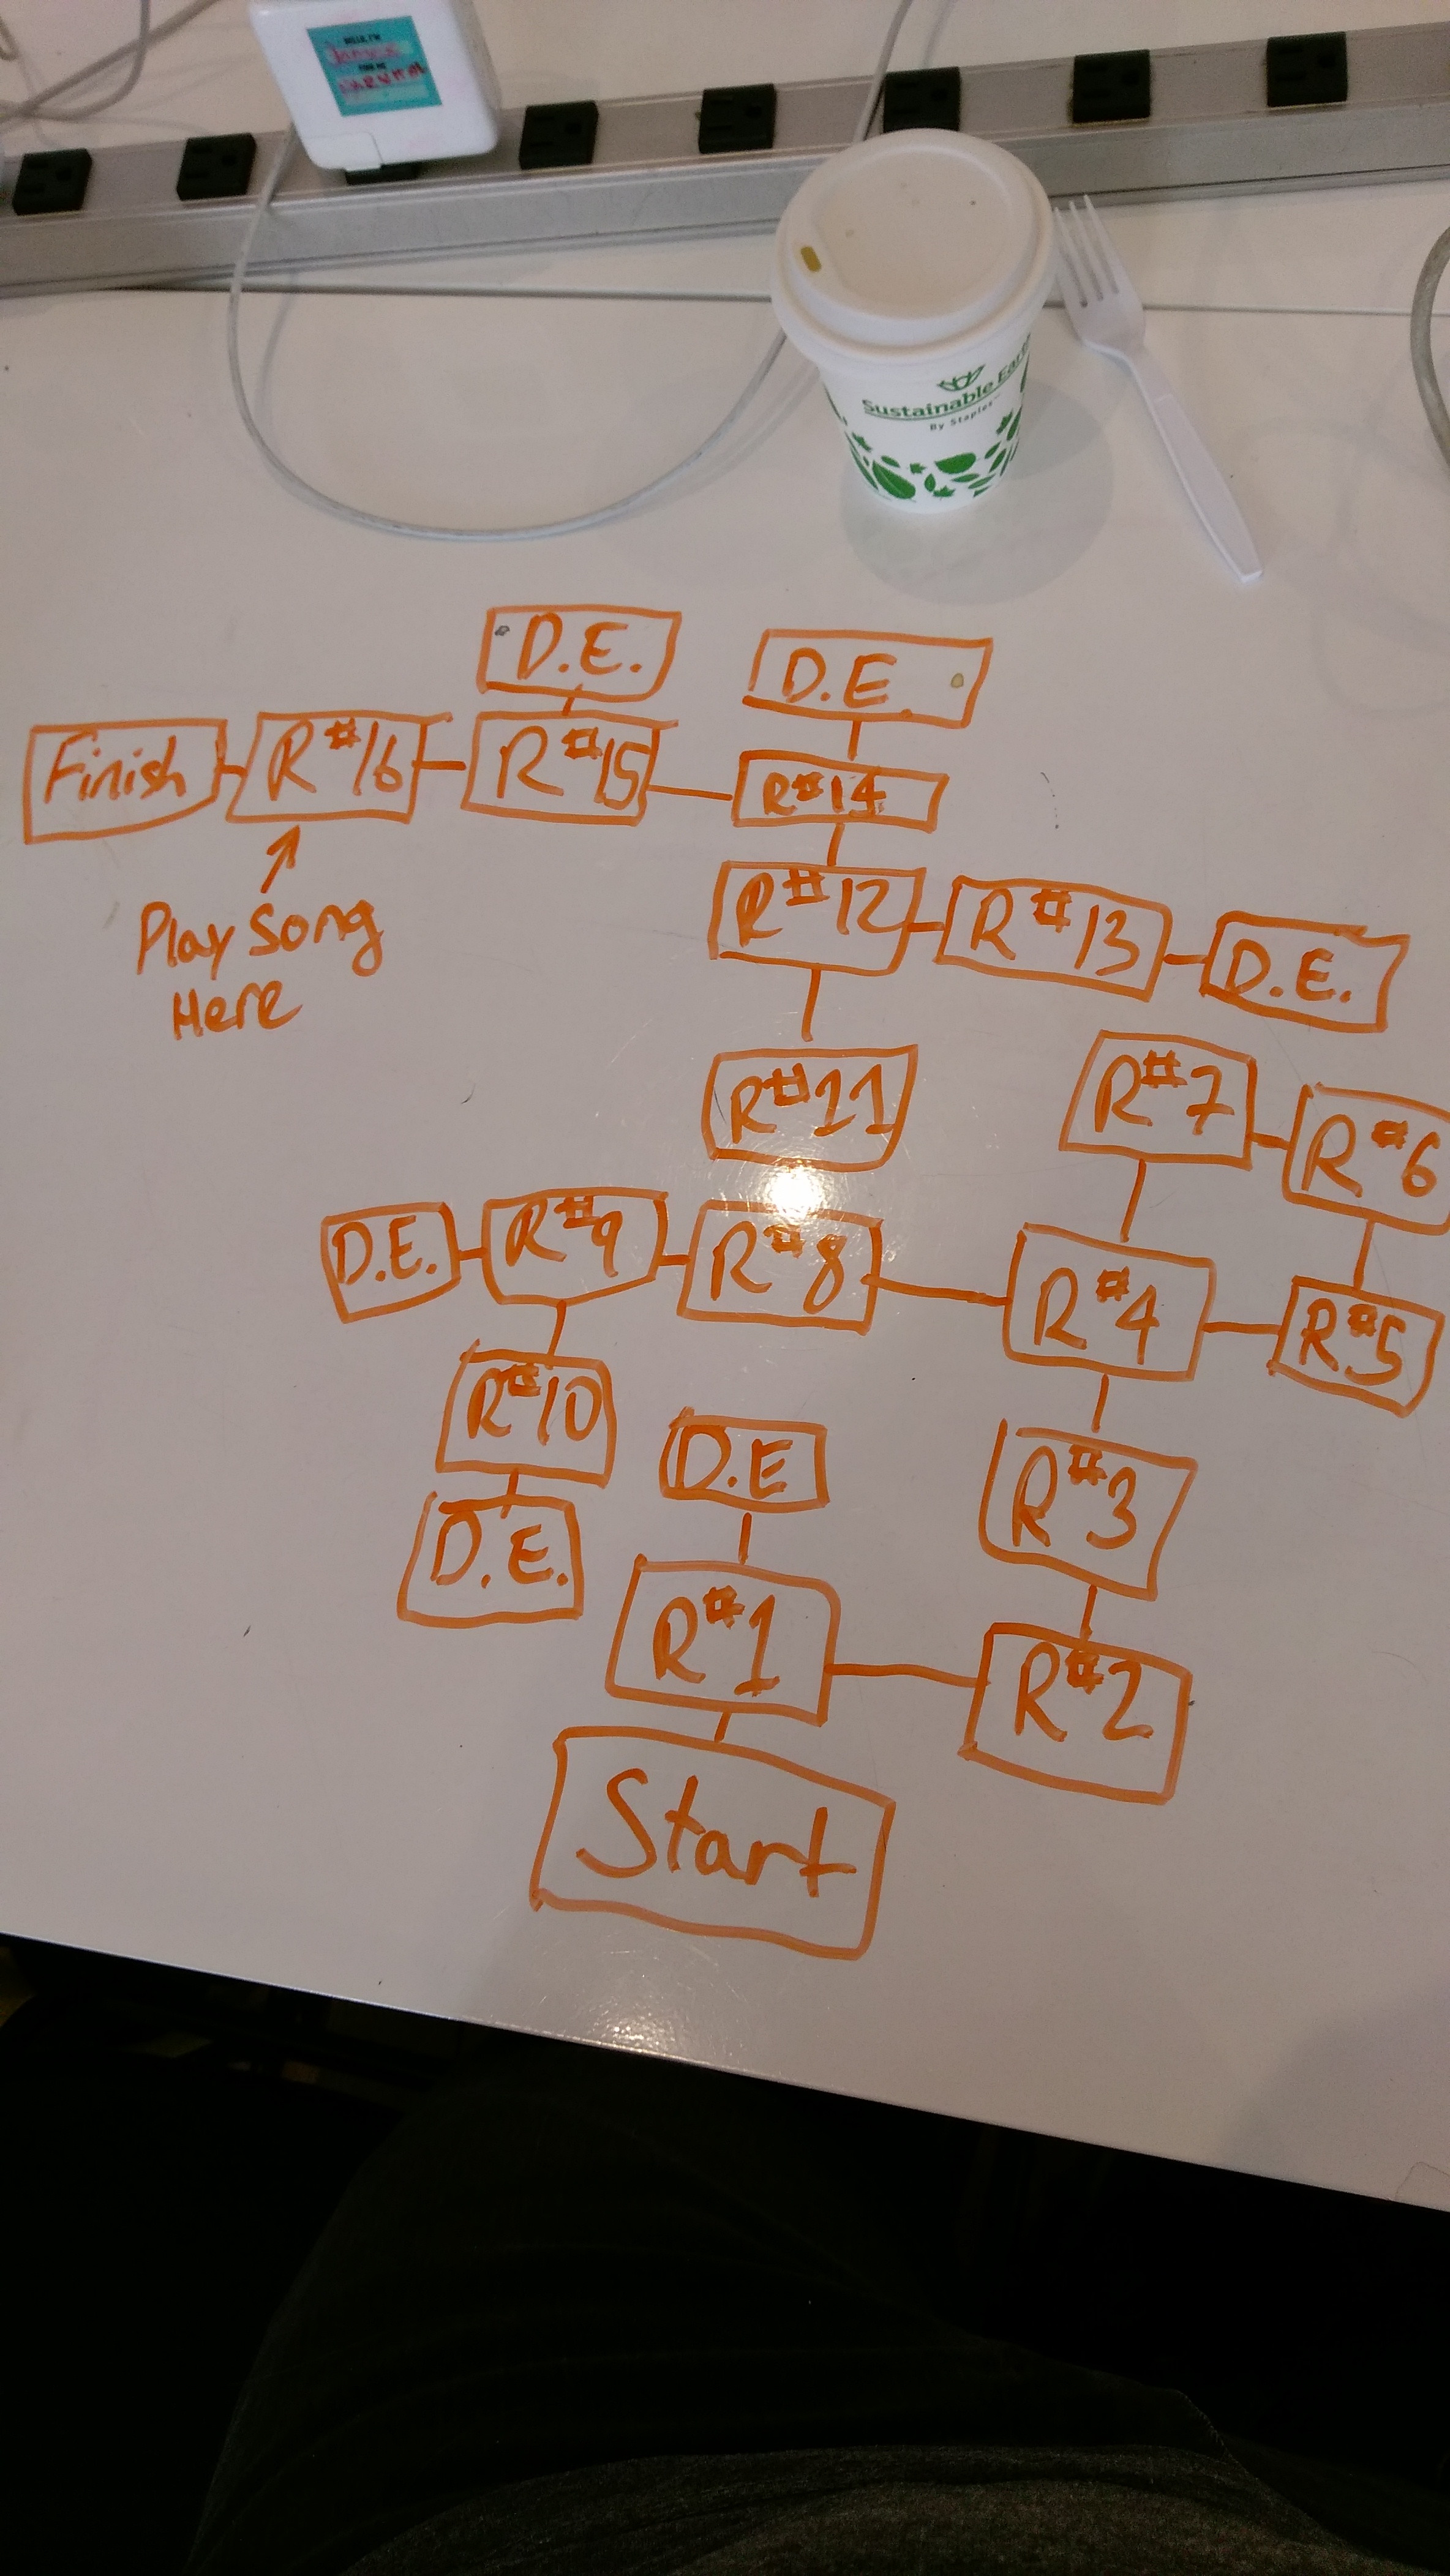 HELLO, I'M
Sustainable Earth
By Staples
D.E.
D.E.
Finish
R#16
R#15
R#14
Play Song
Here
R#12
R#13
D.E.
R#11
R#7
R#6
D.E.
R#9
R#8
R#4
R#5
R#10
D.E
R#3
D.E.
R#1
R#2
Start